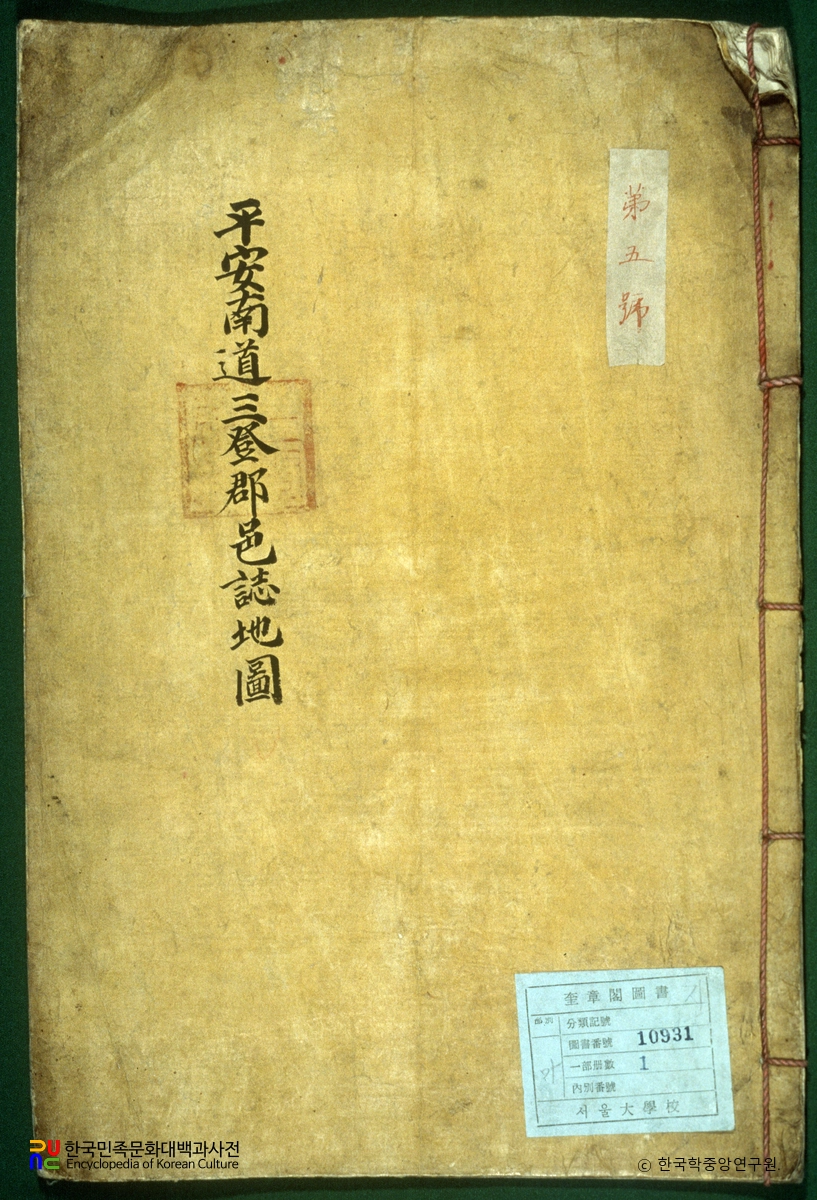 第五號
平安南道三登郡邑誌地圖
奎章閣圖書
部別
分類記號
圖書番號 10931
一部冊數 1
內別番號
서울大學校
한국민족문화대백과사전
Encyclopedia of Korean Culture
© 한국학중앙연구원